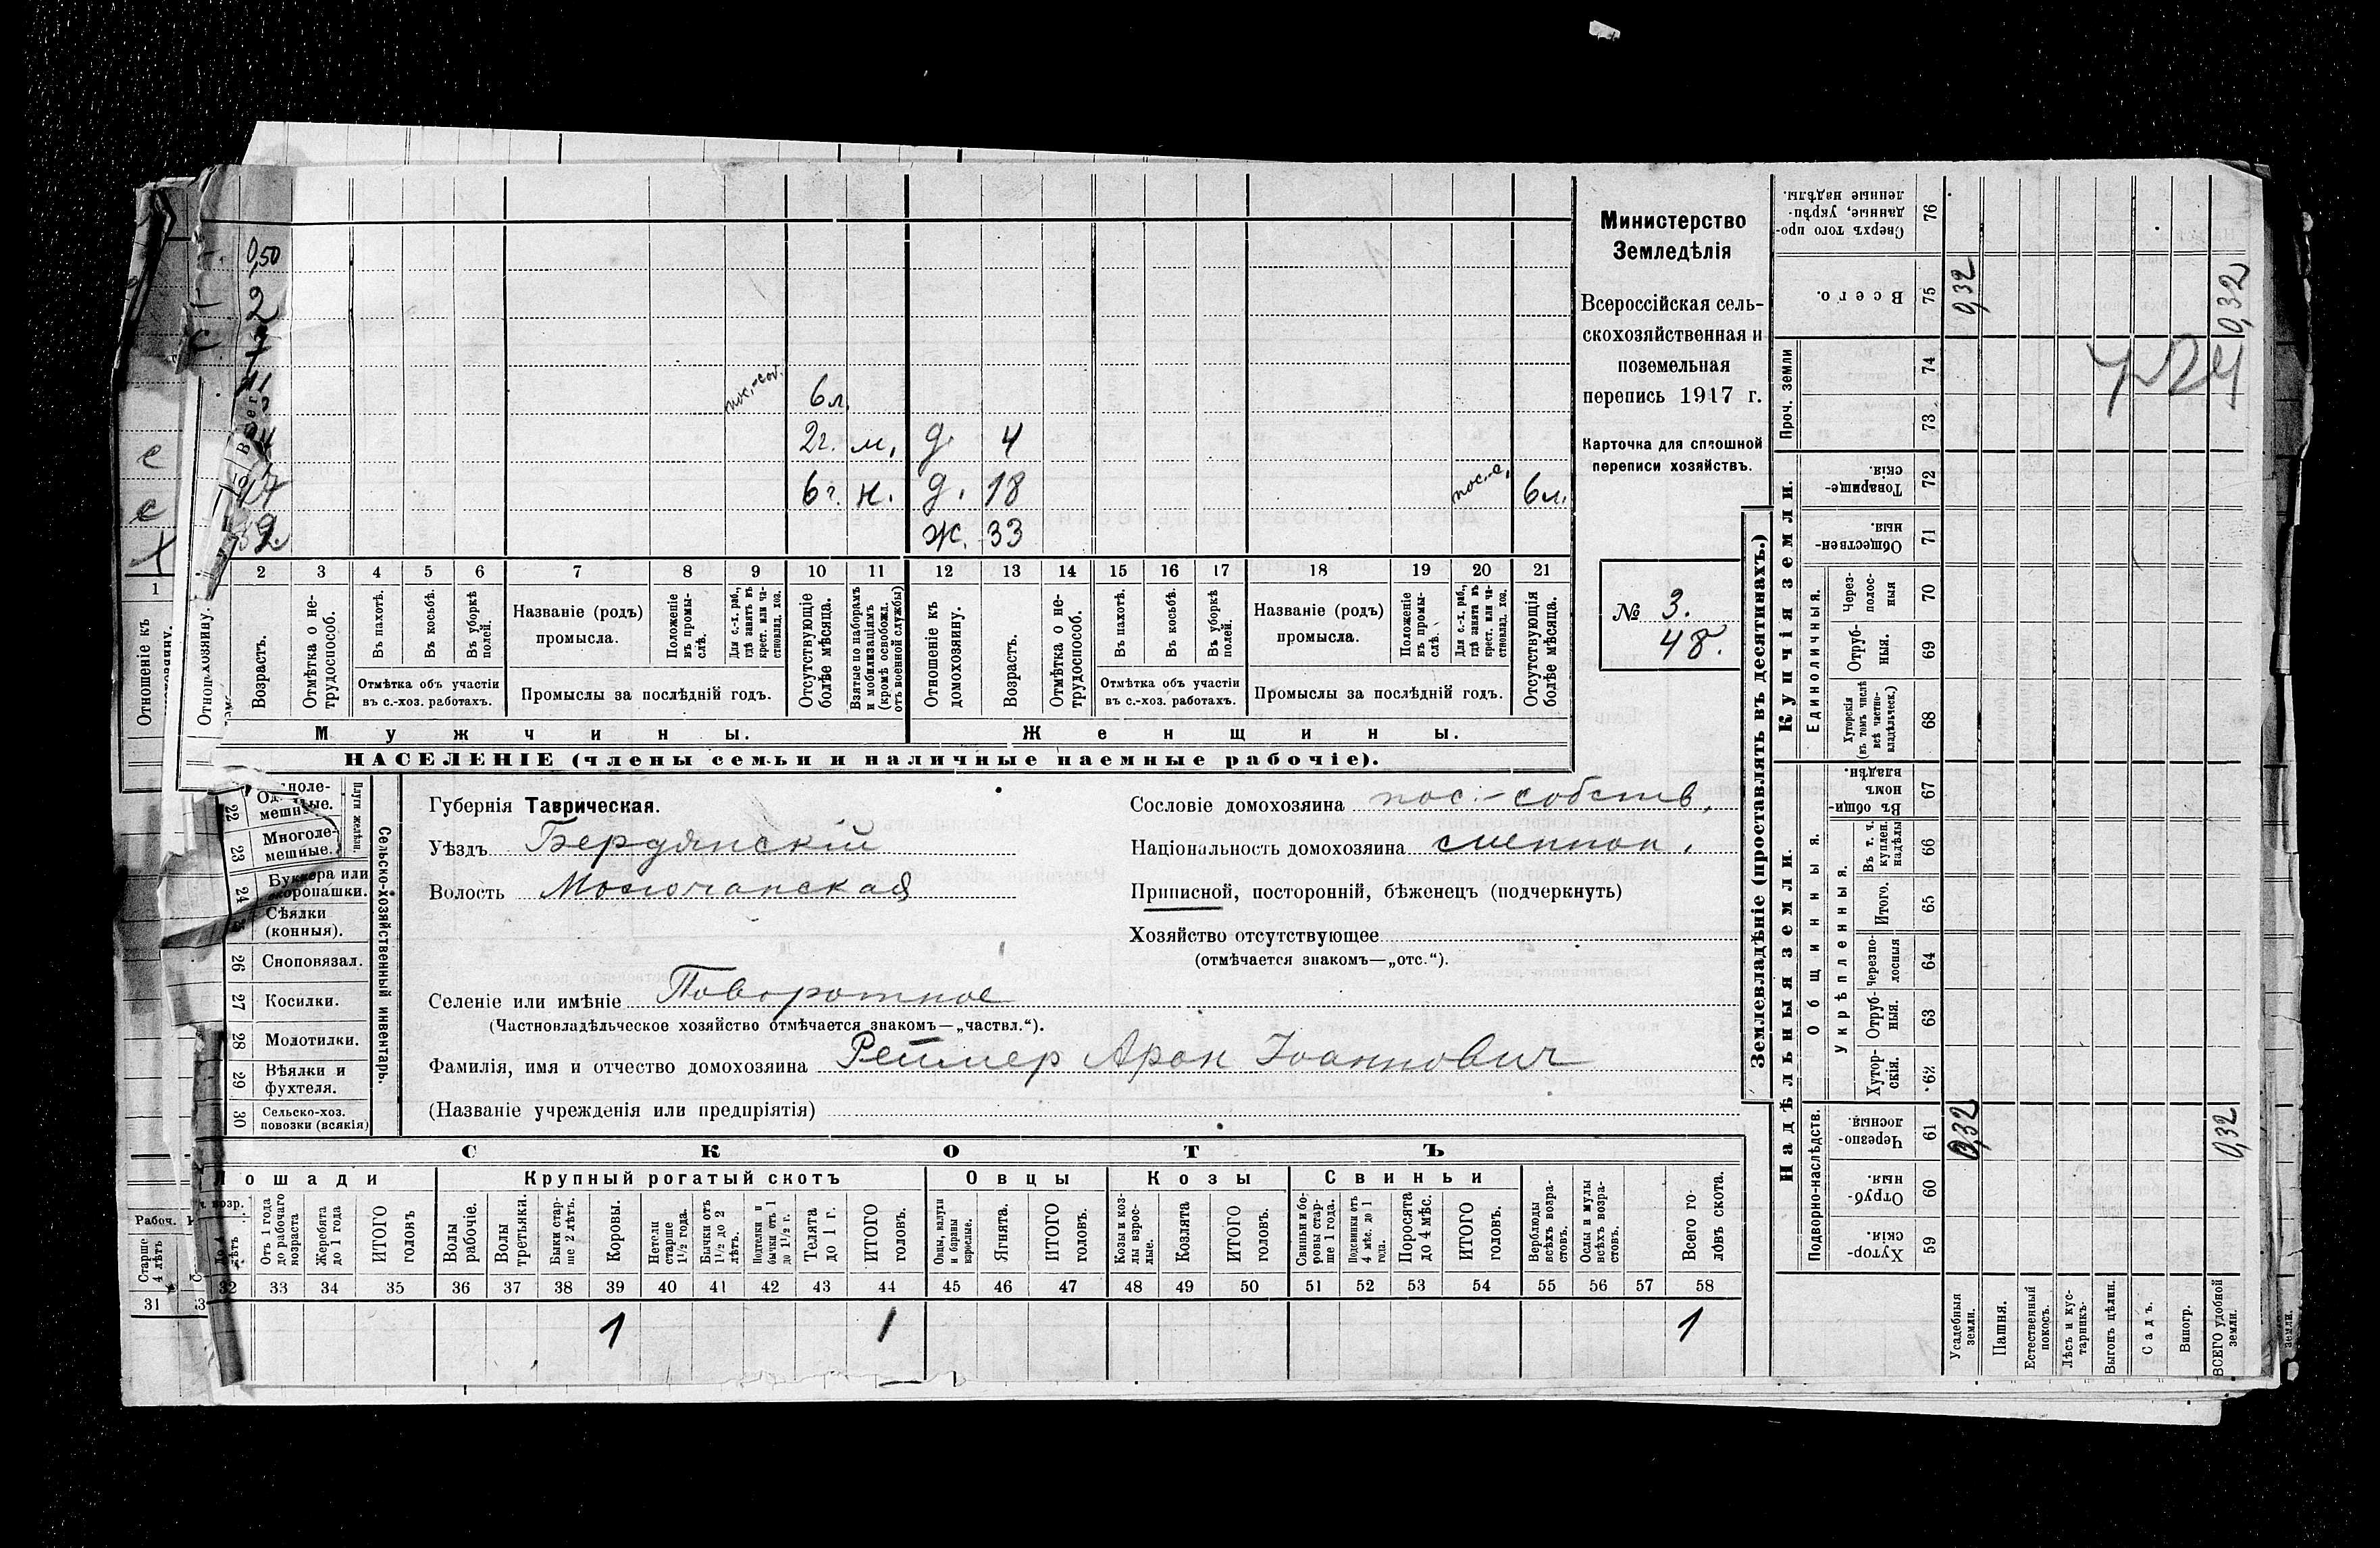 0,50
2
пос.-соб. 6л.
2г. м. д. 4
17 6г. н. д. 18 пос.-с. 6л.
Ж. 33
1 2 3 4 5 6 7 8 9 10 11 12 13 14 15 16 17 18 19 20 21
Отношеніе къ
Отнош. хозяину.
Возрастъ.
Отмѣтка о не-
трудоспособ.
Въ пахотѣ.
Въ косьбѣ.
Въ уборкѣ
полей.
Отмѣтка объ участіи
въ с.-хоз. работахъ.
Названіе (родъ)
промысла.
Положеніе
въ промы-
слѣ.
Для с.-х. раб.,
гдѣ занятъ въ
крест. или ча-
стновлад. хоз.
Промыслы за послѣдній годъ.
Отсутствующіе
болѣе мѣсяца.
Взятые по наборамъ
и мобилизаціямъ
(кромѣ освобожд.
отъ военной службы)
Отношеніе къ
домохозяину.
Возрастъ.
Отмѣтка о не-
трудоспособ.
Въ пахотѣ.
Въ косьбѣ.
Въ уборкѣ
полей.
Отмѣтка объ участіи
въ с.-хоз. работахъ.
Названіе (родъ)
промысла.
Положеніе
въ промы-
слѣ.
Для с.-х. раб.,
гдѣ занята въ
крест. или ча-
стновлад. хоз.
Промыслы за послѣдній годъ.
Отсутствующія
болѣе мѣсяца.
Мужчины. Женщины.
НАСЕЛЕНІЕ (члены семьи и наличные наемные рабочіе).
Министерство
Земледѣлія
Всероссійская сель-
скохозяйственная и
поземельная
перепись 1917 г.
Карточка для сплошной
переписи хозяйствъ.
№ 3.
48.
Губернія Таврическая.
Уѣздъ Бердянскій
Волость Молочанская
Сословіе домохозяина пос.-собств.
Національность домохозяина
Приписной, посторонній, бѣженецъ (подчеркнуть)
Хозяйство отсутствующее
(отмѣчается знакомъ—„отс.“).
Селеніе или имѣніе Поворотное
(Частновладѣльческое хозяйство отмѣчается знакомъ—„частвл.“).
Фамилія, имя и отчество домохозяина Реймер Арон Іоаннович
(Названіе учрежденія или предпріятія)
Сельско-хозяйственный инвентарь.
Плуги желѣзн.
22
23 Многоле-
мешные.
24 Буккера или
скоропашки.
Сѣялки
(конныя).
26 Сноповязал.
27 Косилки.
28 Молотилки.
29 Вѣялки и
фухтеля.
30 Сельско-хоз.
повозки (всякія)
СКОТЪ
Лошади Крупный рогатый скотъ Овцы Козы Свиньи
Рабоч.
Старше
4 лѣтъ
Отъ 1 года
до рабочаго
возраста
Жеребята
до 1 года
ИТОГО
головъ
Волы
рабочіе.
Волы
третьяки.
Быки стар-
ше 2 лѣтъ.
Коровы.
Нетели
старше
1½ года.
Бычки отъ
1½ до 2
лѣтъ.
Подтелки и
бычки отъ 1
до 1½ г.
Телята
до 1 г.
ИТОГО
головъ.
Овцы, валухи
и бараны
взрослые.
Ягнята.
ИТОГО
головъ.
Козы и коз-
лы взрос-
лые.
Козлята
ИТОГО
головъ.
Свиньи и бо-
ровы стар-
ше 1 года.
Подсвинки отъ
4 мѣс. до 1
года.
Поросята
до 4 мѣс.
ИТОГО
головъ.
Верблюды
всѣхъ возра-
стовъ.
Ослы и мулы
всѣхъ возра-
стовъ.
Всего го-
ловъ скота.
31 32 33 34 35 36 37 38 39 40 41 42 43 44 45 46 47 48 49 50 51 52 53 54 55 56 57 58
1 1 1
Землевладѣніе (проставлять въ десятинахъ.)
Надѣльныя земли. Купчія земли. Проч. земли
Подворно-наслѣдств.
Общинныя.
Укрѣпленныя.
Единоличныя.
Хутор-
скія. 59
Отруб-
ныя. 60
Черезпо-
лосныя. 61
Хутор-
скія. 62
Отруб-
ныя. 63
Черезпо-
лосныя 64
Итого. 65
Въ т. ч.
куплен.
надѣлы 66
Въ общи-
номъ
владѣн. 67
Хуторскія
(въ томъ числѣ
всѣ частно-
владѣльческ.) 68
Отруб-
ныя. 69
Через-
полос-
ныя 70
Обществен-
ныя. 71
Товарище-
скія. 72
73
74
Всего. 75
Сверхъ того про-
данные, укрѣп-
ленные надѣлы. 76
Усадебныя
земли.
0,32 0,32
Пашня.
Естественный
покосъ.
Лѣсъ и кус-
тарникъ.
Выгонъ цѣлин.
Садъ.
Виногр.
ВСЕГО удобной
земли.
0,32 0,32